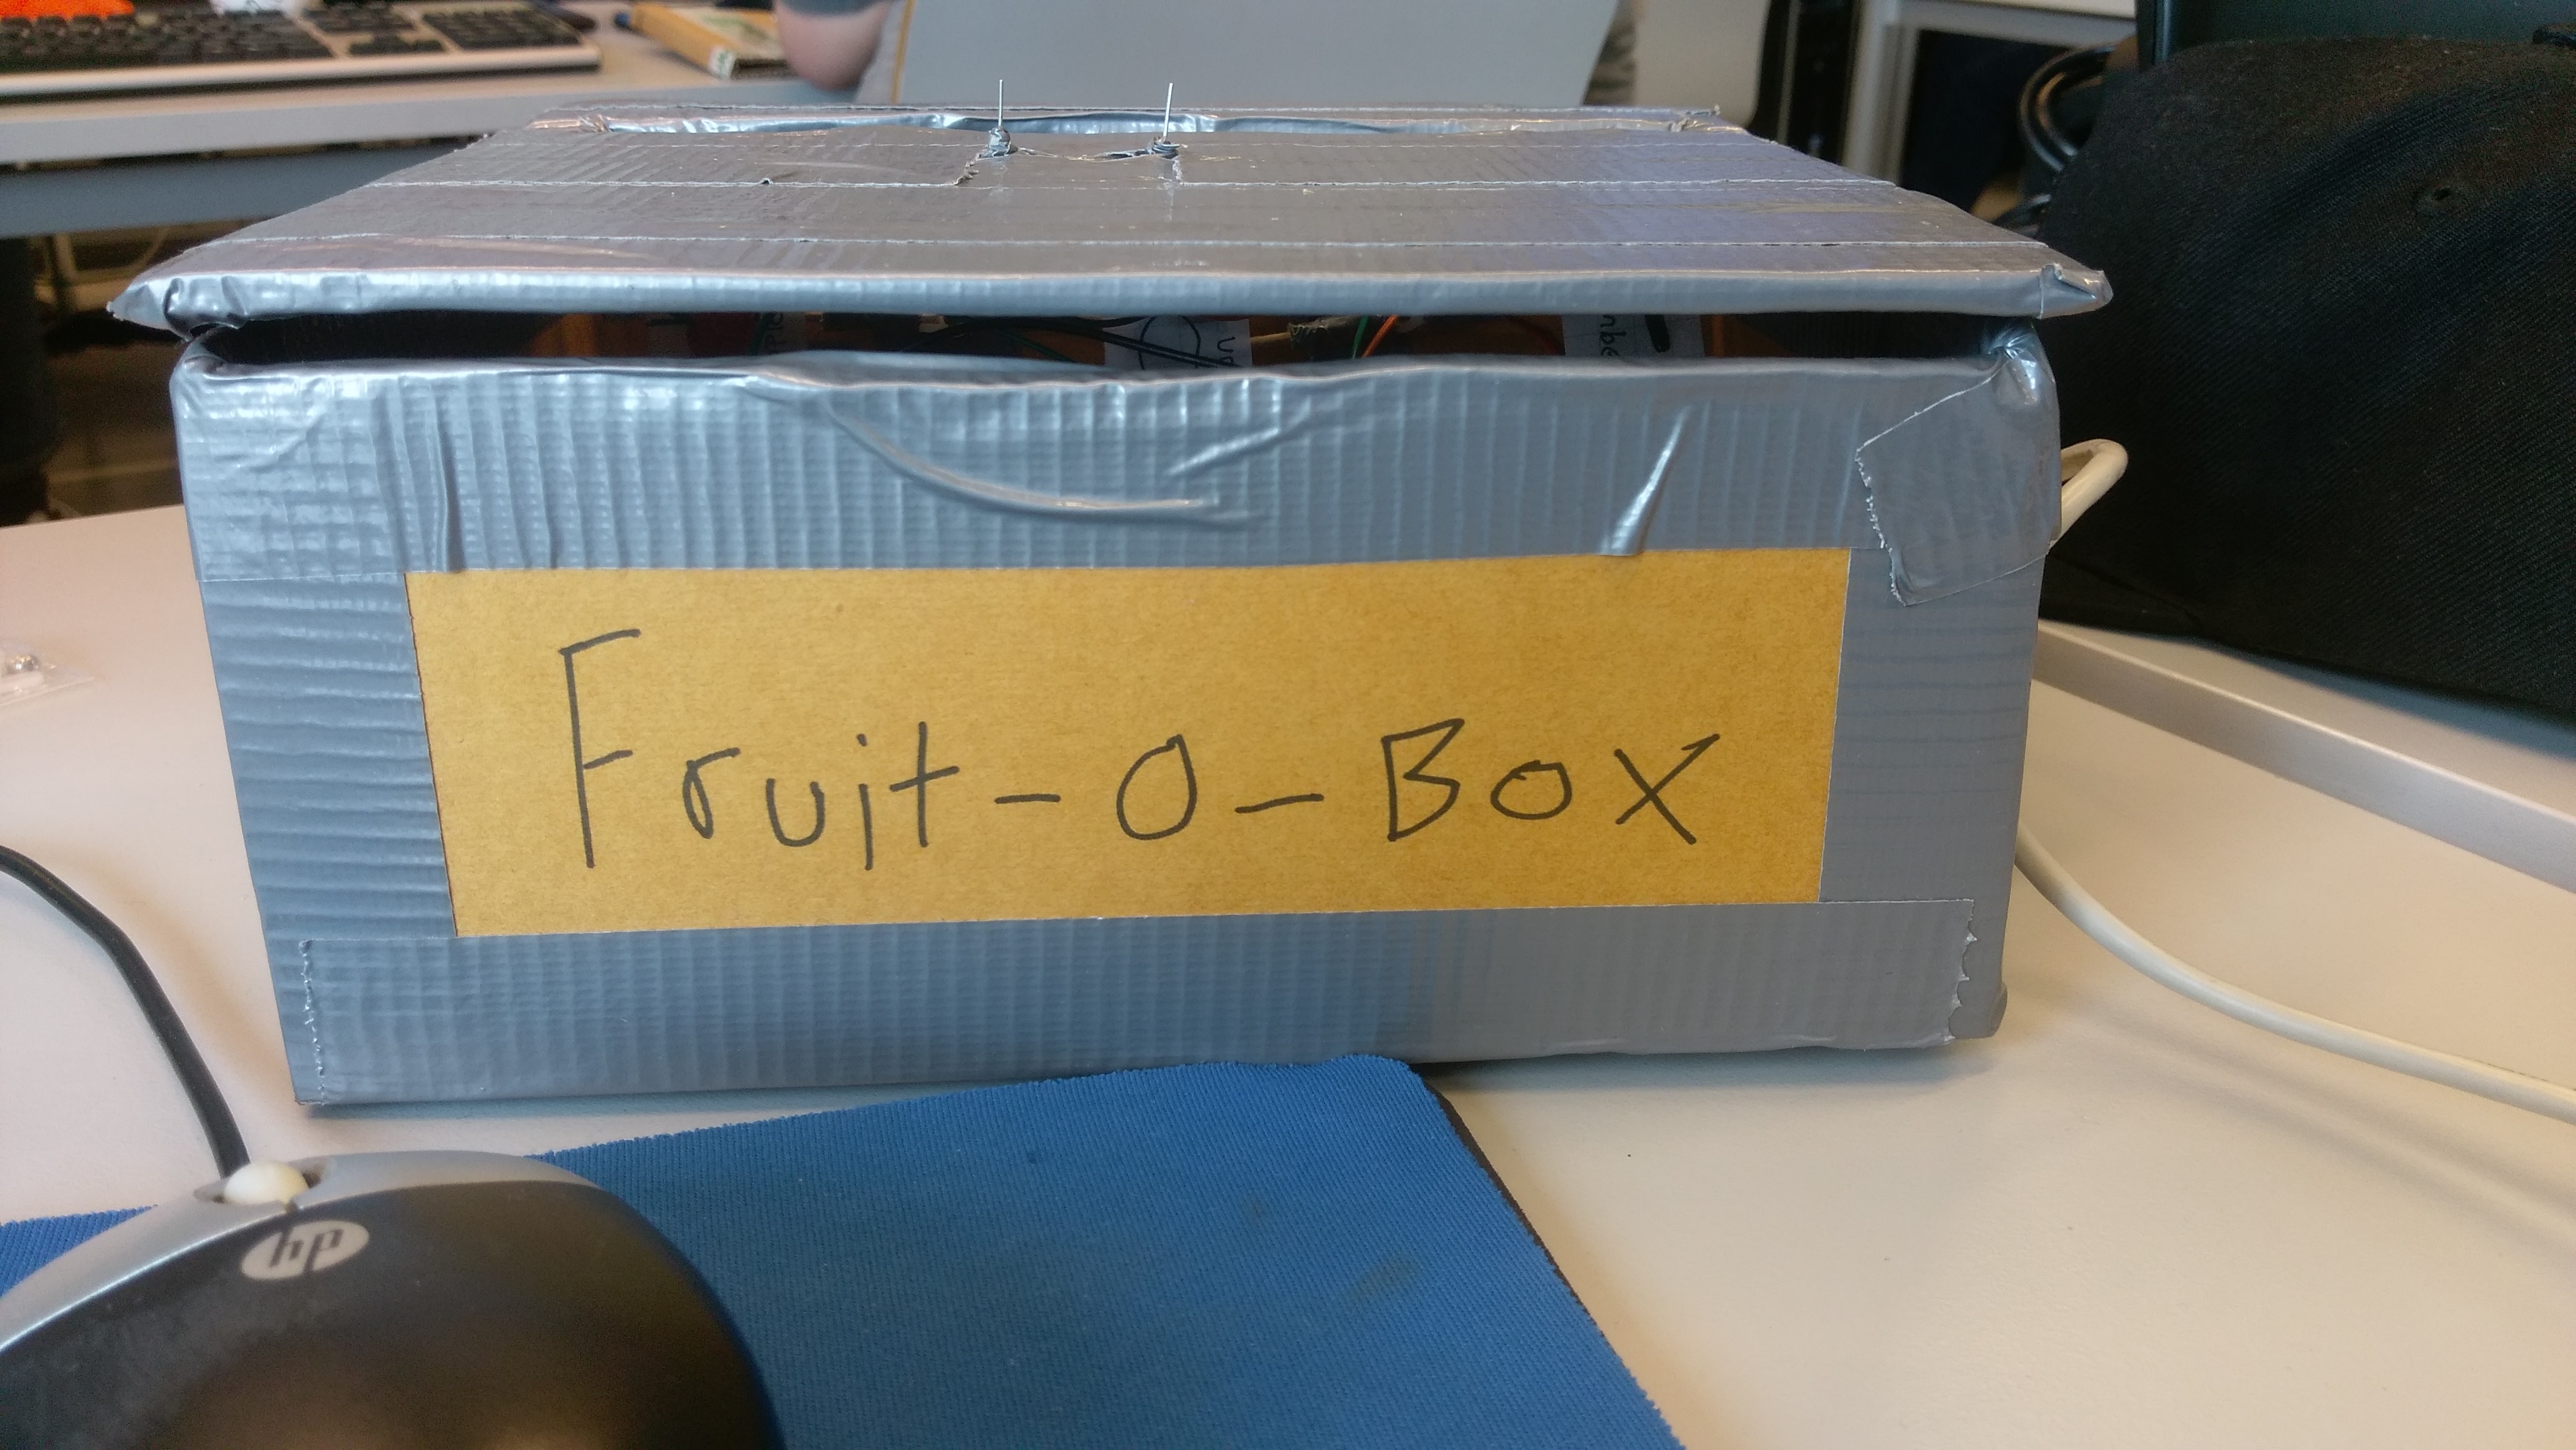 Fruit-O-Box
hp